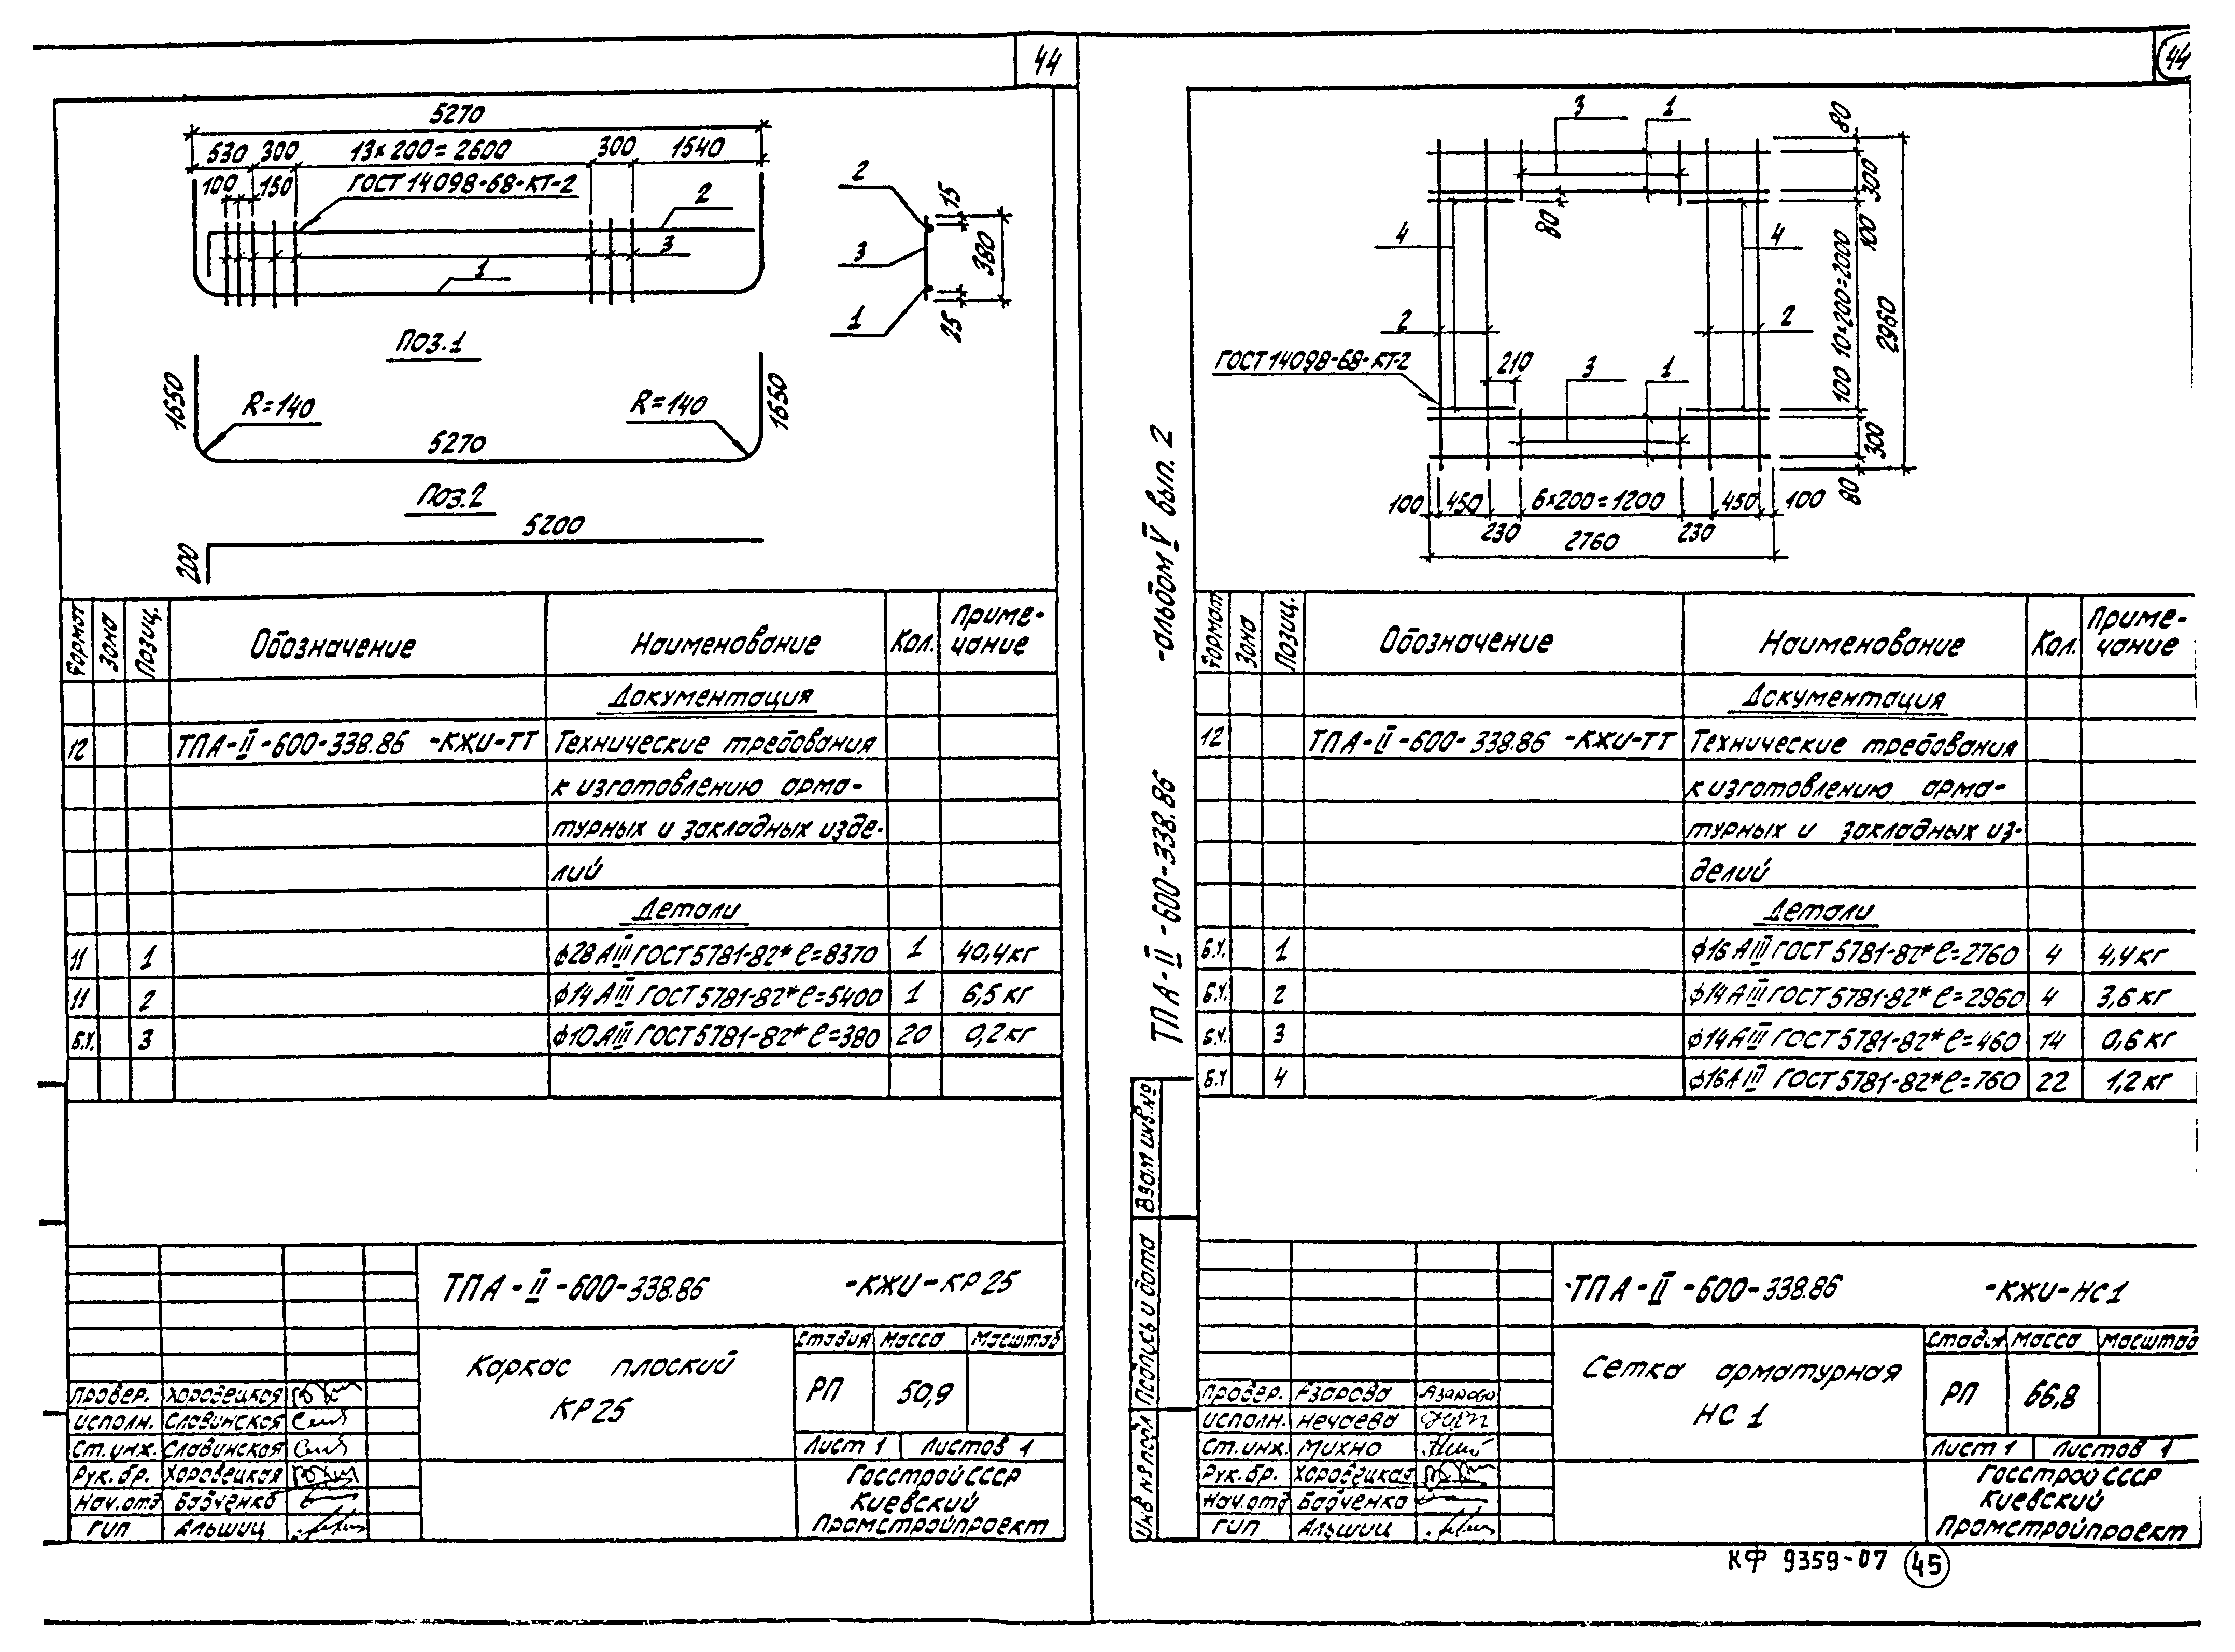 44
5270
530 300 13×200=2600 300 1540
100 150 ГОСТ 14098-68-КТ-2
2
3
1
2
3
1
15
380
25
Поз.1
1650
R=140
R=140
1650
5270
Поз.2
5200
200
Формат Зона Позиц. Обозначение Наименование Кол. Приме-
чание
Документация
12 ТПА-II-600-338.86 -КЖИ-ТТ Технические требования
к изготовлению арма-
турных и закладных изде-
лий
Детали
11 1 ф28 АIII ГОСТ 5781-82* ℓ=8370 1 40,4кг
11 2 ф14 АIII ГОСТ 5781-82* ℓ=5400 1 6,5 кг
Б.Ч. 3 ф10 АIII ГОСТ 5781-82* ℓ=380 20 0,2кг
ТПА-II-600-338.86 -КЖИ-КР25
Каркас плоский
КР25
Стадия Масса Масштаб
РП 50,9
Лист 1 Листов 1
Провер. Хоровецкая
Исполн. Славинская
Ст.инж. Славинская
Рук.бр. Хоровецкая
Нач.отд Бабченко
ГИП Альшиц
Госстрой СССР
Киевский
Промстройпроект
44
3 1
80
300
80
100
4 4
10×200=2000
2960
2 2
ГОСТ 14098-68-КТ-2
210
3 1
100
300
80
100 450 6×200=1200 450 100
230 230
2760
ТПА-II-600-338.86 -альбом V вып. 2
Формат Зона Позиц. Обозначение Наименование Кол. Приме-
чание
Документация
12 ТПА-II-600-338.86 -КЖИ-ТТ Технические требования
к изготовлению арма-
турных и закладных из-
делий
Детали
Б.Ч. 1 ф16 АIII ГОСТ 5781-82* ℓ=2760 4 4,4 кг
Б.Ч. 2 ф14 АIII ГОСТ 5781-82* ℓ=2960 4 3,6 кг
Б.Ч. 3 ф14 АIII ГОСТ 5781-82* ℓ=460 14 0,6 кг
Б.Ч 4 ф16 АIII ГОСТ 5781-82* ℓ=760 22 1,2 кг
Взам инв.№
Подпись и дата
Инв № подл
ТПА-II-600-338.86 -КЖИ-НС1
Сетка арматурная
НС 1
Стадия Масса Масштаб
РП 66,8
Лист 1 Листов 1
Провер. Азарова Азарова
Исполн. Нечаева
Ст.инж. Михно
Рук.бр. Хоровецкая
Нач.отд Бабченко
ГИП Альшиц
Госстрой СССР
Киевский
Промстройпроект
КФ 9359-07 45